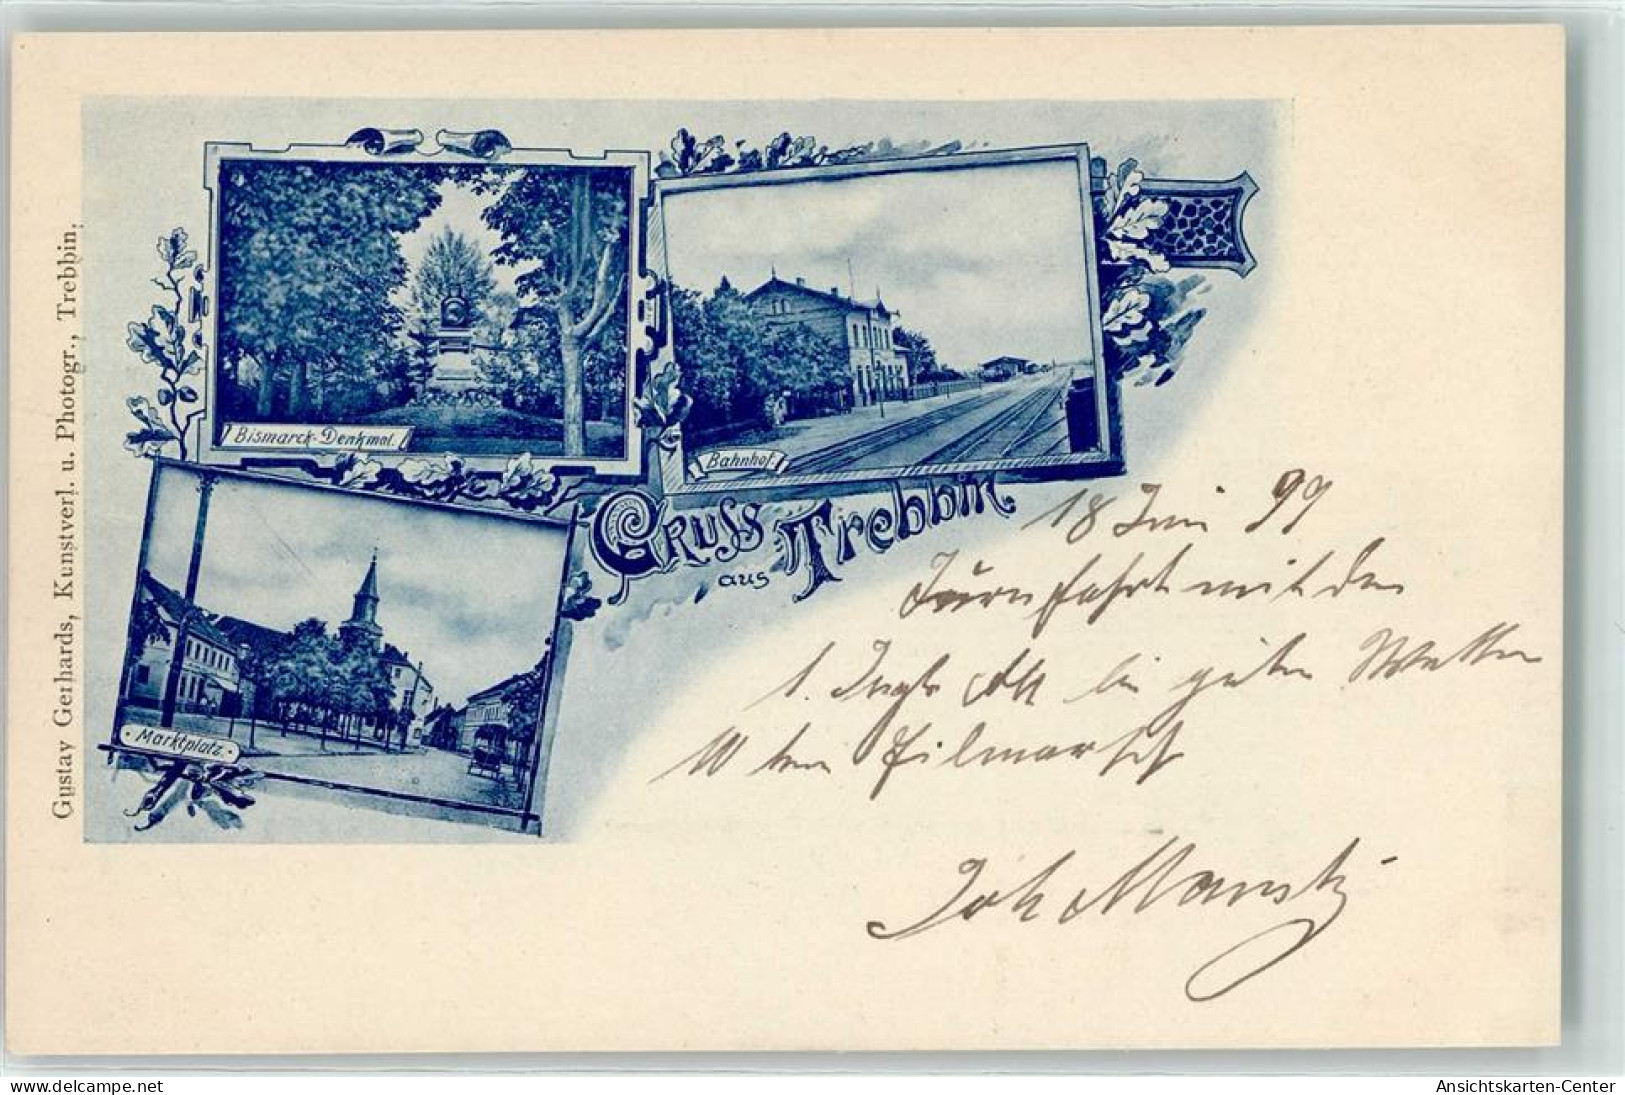 Gustav Gerhards, Kunstverl. u. Photogr., Trebbin.
Bismarck-Denkmal.
Bahnhof.
Gruss aus Trebbin
Marktplatz.
18 Juni 99
Turnfahrt mit der
1. bei guten Wetter
10 km
Joh
delcampe.net
Ansichtskarten-Center